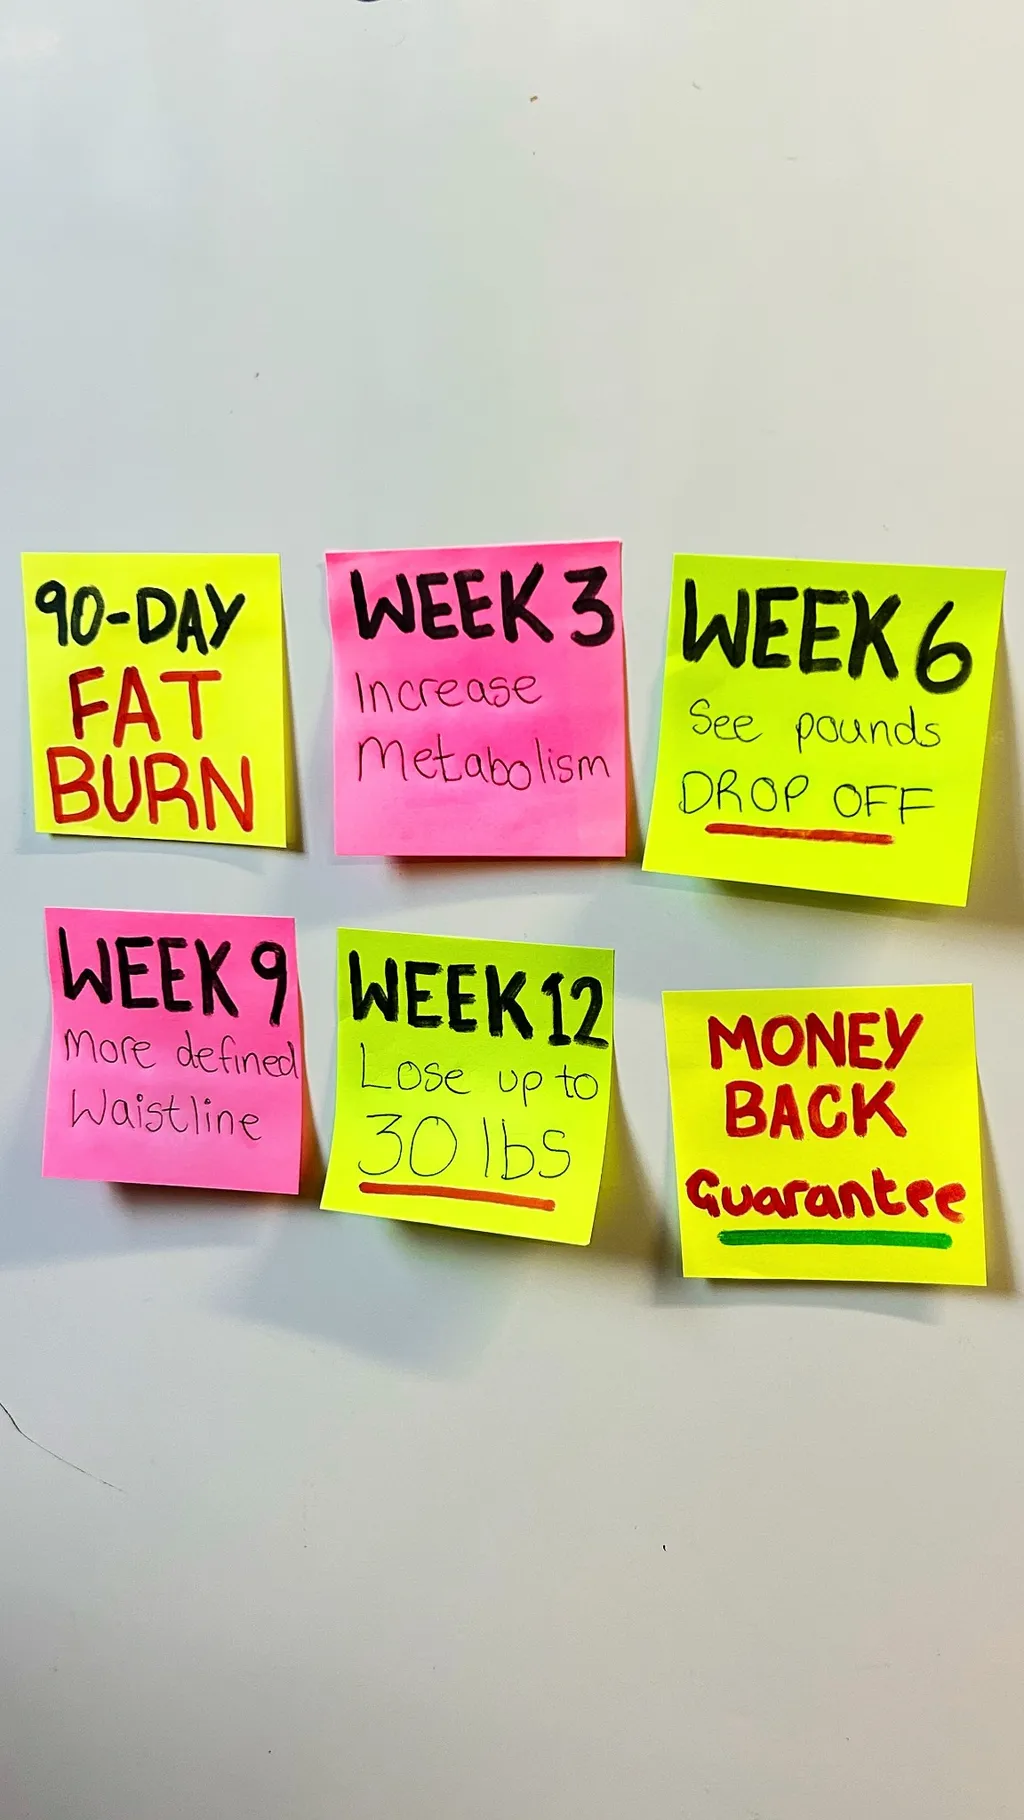 90-DAY
FAT
BURN
WEEK 3
Increase
Metabolism
WEEK 6
See pounds
DROP OFF
WEEK 9
More defined
Waistline
WEEK 12
Lose up to
30 lbs
MONEY
BACK
Guarantee